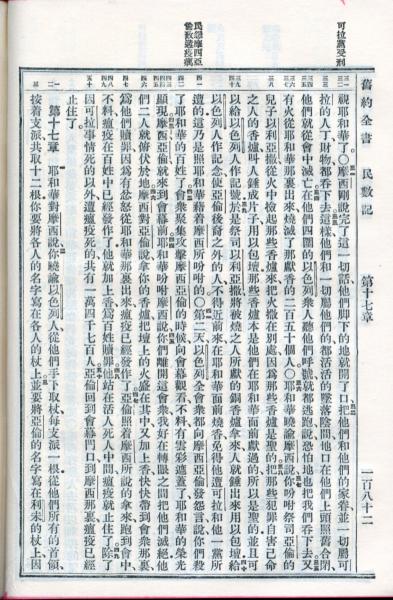 可拉黨受刑
民怨摩西亞
舊約全書 民數記 第十七章 一百八十二
視耶和華了〇摩西剛說完了這一切話他們腳下的地就開了口把他們和他們的家眷並一切屬可
拉的人丁財物都吞下去這樣他們和一切屬他們的都活活的墜落陰間地口在他們上頭照舊合閉
他們就從會中滅亡在他們四圍的以色列衆人聽他們呼號就都逃跑說恐怕地也把我們吞下去又
有火從耶和華那裏出來燒滅了那獻香的二百五十個人〇耶和華曉諭摩西說你吩咐祭司亞倫的
兒子以利亞撒從火中撿起那些香爐來把火撒在別處因爲那些香爐是聖的把那些犯罪自害己命
之人的香爐叫人錘成片子用以包壇那些香爐本是他們在耶和華面前獻過的所以是聖的並且可
以給以色列人作記號於是祭司以利亞撒將被燒之人所獻的銅香爐拿來人就錘出來用以包壇給
以色列人作記念使亞倫後裔之外的人不得近前來在耶和華面前燒香免得他遭可拉和他一黨所
遭的這乃是照耶和華藉着摩西所吩咐的〇第二天以色列全會衆都向摩西亞倫發怨言說你們殺
了耶和華的百姓了會衆聚集攻擊摩西亞倫的時候向會幕觀看不料有雲彩遮蓋了耶和華的榮光
顯現摩西亞倫就來到會幕前耶和華吩咐摩西說你們離開這會衆我好在轉眼之間把他們滅絕他
們二人就俯伏於地摩西對亞倫說拿你的香爐把壇上的火盛在其中又加上香快快帶到會衆那裏
爲他們贖罪因爲有忿怒從耶和華那裏出來瘟疫已經發作了亞倫照着摩西所說的拿來跑到會中
不料瘟疫在百姓中已經發作了他就加上香爲百姓贖罪他站在活人死人中間瘟疫就止住了除了
因可拉事情死的以外遭瘟疫死的共有一萬四千七百人亞倫回到會幕門口到摩西那裏瘟疫已經
止住了
第十七章 耶和華對摩西說你曉諭以色列人從他們手下取杖每支派一根從他們所有的首領
按着支派共取十二根你要將各人的名字寫在各人的杖上並要將亞倫的名字寫在利未的杖上因